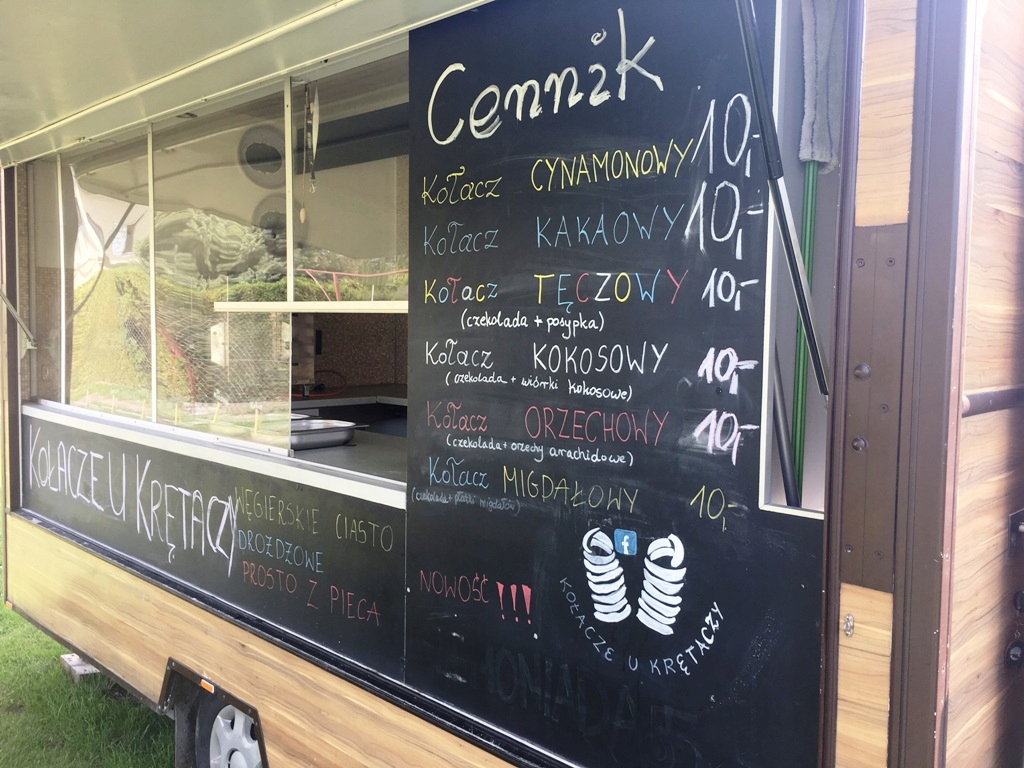 Cennik
Kołacz CYNAMONOWY 10,-
Kołacz KAKAOWY 10,-
Kołacz TĘCZOWY 10,-
(czekolada + posypka)
Kołacz KOKOSOWY 10,-
(czekolada + wiórki kokosowe)
Kołacz ORZECHOWY 10,-
(czekolada + orzechy arachidowe)
Kołacz MIGDAŁOWY 10,-
(czekolada + płatki migdałów)
NOWOŚĆ !!!
f
KOŁACZE U KRĘTACZY
KOŁACZE U KRĘTACZY
WĘGIERSKIE CIASTO
DROŻDŻOWE
PROSTO Z PIECA